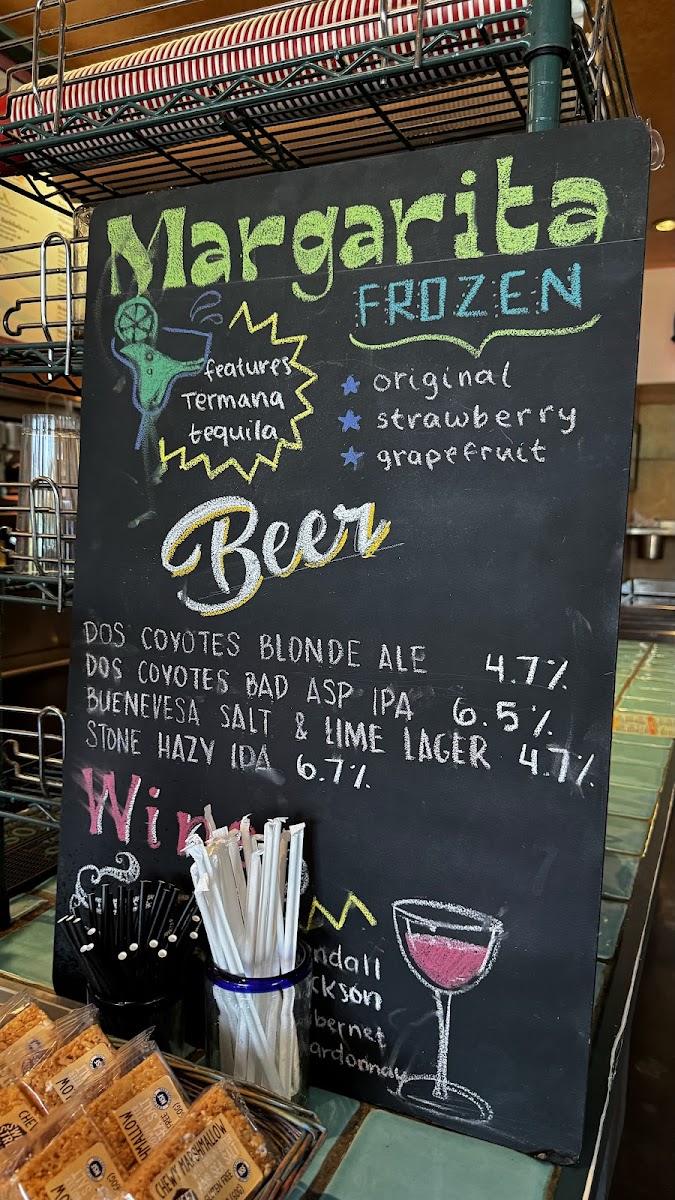 Margarita
FROZEN
features
Termana
tequila
original
strawberry
grapefruit
Beer
DOS COYOTES BLONDE ALE 4.7%
DOS COYOTES BAD ASP IPA 6.5%
BUENEVESA SALT & LIME LAGER 4.7%
STONE HAZY IPA 6.7%
Win
ndall
ckson
bernet
ardonnay
CHEWY MARSHMALLOW
GLUTEN FREE